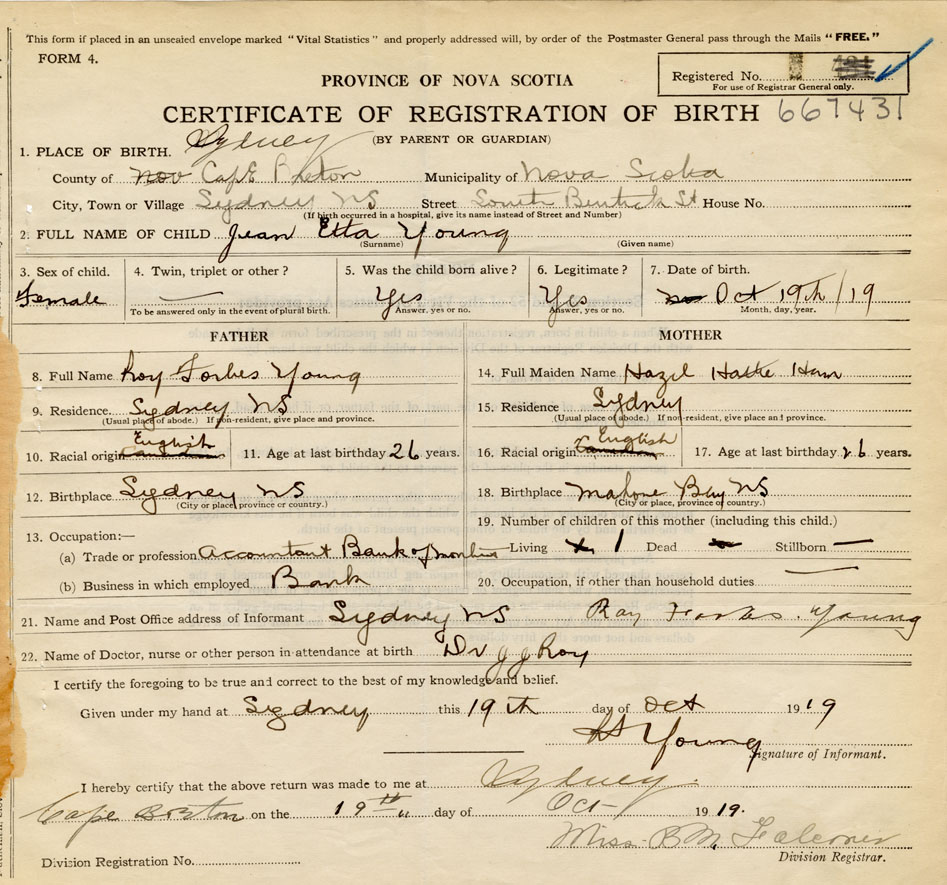 This form if placed in an unsealed envelope marked "Vital Statistics" and properly addressed will, by order of the Postmaster General pass through the Mails "FREE."
FORM 4.
Registered No.
For use of Registrar General only.
PROVINCE OF NOVA SCOTIA
CERTIFICATE OF REGISTRATION OF BIRTH 667431
(BY PARENT OR GUARDIAN)
1. PLACE OF BIRTH. Sydney
County of Nov Cape Breton Municipality of Nova Scotia
City, Town or Village Sydney NS Street South Bentick St House No.
(If birth occurred in a hospital, give its name instead of Street and Number)
2. FULL NAME OF CHILD Jean Etta Young
(Surname) (Given name)
3. Sex of child. 4. Twin, triplet or other? 5. Was the child born alive? 6. Legitimate? 7. Date of birth.
Female — Yes Yes Oct 19th/19
To be answered only in the event of plural birth. Answer, yes or no. Answer, yes or no. Month, day, year.
FATHER MOTHER
8. Full Name Roy Forbes Young 14. Full Maiden Name Hazel Ham
9. Residence. Sydney NS 15. Residence Sydney
(Usual place of abode.) If non-resident, give place and province. (Usual place of abode.) If non-resident, give place and province.
10. Racial origin Canadian English 11. Age at last birthday 26 years. 16. Racial origin Canadian English 17. Age at last birthday 26 years.
12. Birthplace Sydney NS 18. Birthplace Mahone Bay NS
(City or place, province or country.) (City or place, province or country.)
13. Occupation:— 19. Number of children of this mother (including this child.)
(a) Trade or profession Accountant Bank of Living 1 Dead Stillborn —
(b) Business in which employed Bank 20. Occupation, if other than household duties —
21. Name and Post Office address of Informant Sydney NS Roy Forbes Young
22. Name of Doctor, nurse or other person in attendance at birth Dr J J Roy
I certify the foregoing to be true and correct to the best of my knowledge and belief.
Given under my hand at Sydney this 19th day of Oct 1919
Young
Signature of Informant.
I hereby certify that the above return was made to me at Sydney.
Cape Breton on the 19th day of Oct 1919.
Miss B M Falconer
Division Registration No. Division Registrar.